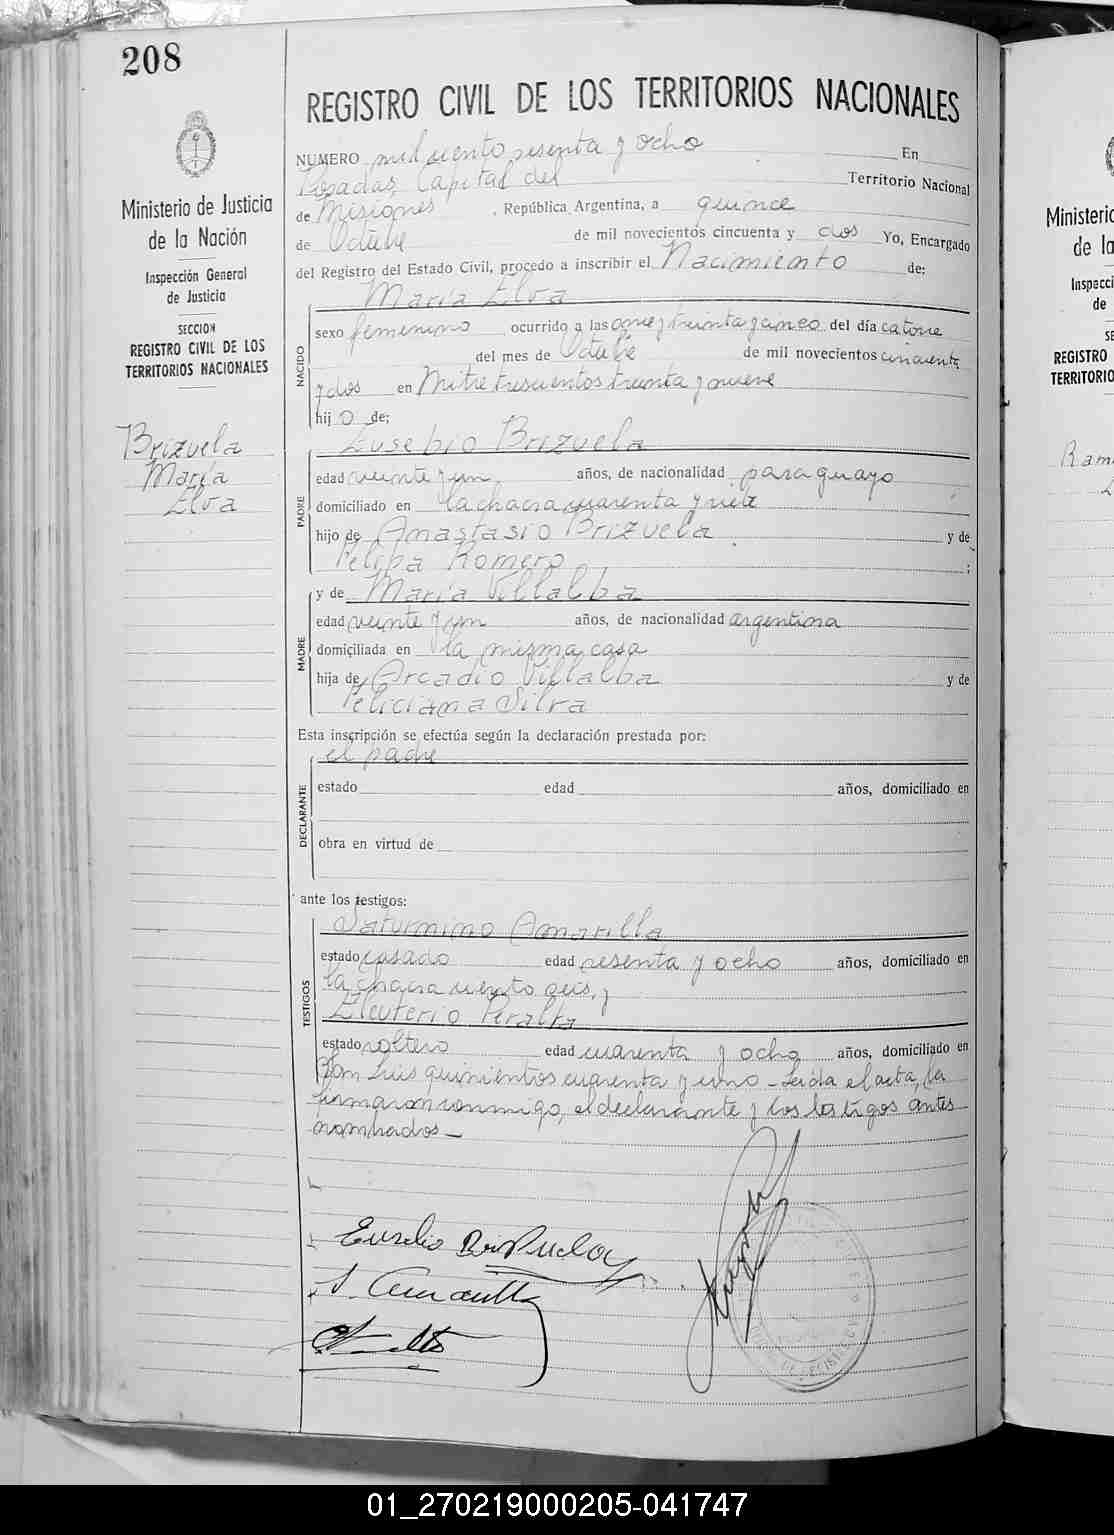 208
REGISTRO CIVIL DE LOS TERRITORIOS NACIONALES
Ministerio de Justicia
de la Nación
Inspección General
de Justicia
SECCION
REGISTRO CIVIL DE LOS
TERRITORIOS NACIONALES
Brizuela
María
Elva
NUMERO mil ciento sesenta y ocho En
Posadas, Capital del Territorio Nacional
de Misiones, República Argentina, a quince
de Octubre de mil novecientos cincuenta y dos Yo, Encargado
del Registro del Estado Civil, procedo a inscribir el Nacimiento de:
María Elva
NACIDO
sexo femenino ocurrido a las once y treinta y cinco del día catorce
del mes de Octubre de mil novecientos cincuenta
y dos en Mitre trescientos treinta y nueve
hij o de;
Eusebio Brizuela
PADRE
edad veinte y un años, de nacionalidad paraguayo
domiciliado en la chacra cuarenta y siete
hijo de Anastasio Brizuela y de
Felipa Romero ;
y de María Villalba
MADRE
edad veinte y un años, de nacionalidad argentina
domiciliada en la misma casa
hija de Arcadio Villalba y de
Feliciana Silva
Esta inscripción se efectúa según la declaración prestada por:
el padre
DECLARANTE
estado edad años, domiciliado en
obra en virtud de
ante los testigos:
Saturnino Amarilla
TESTIGOS
estado casado edad sesenta y ocho años, domiciliado en
la chacra ciento seis, y
Eleuterio Peralta
estado soltero edad cuarenta y ocho años, domiciliado en
San Luis quinientos cuarenta y uno - Leída el acta, la
firmaron conmigo, el declarante y los testigos antes
nombrados -
Eusebio Brizuela
S. Amarilla
Ministerio
de la
Inspecci
de
SE
REGISTRO
TERRITORIO
Ram
01_270219000205-041747